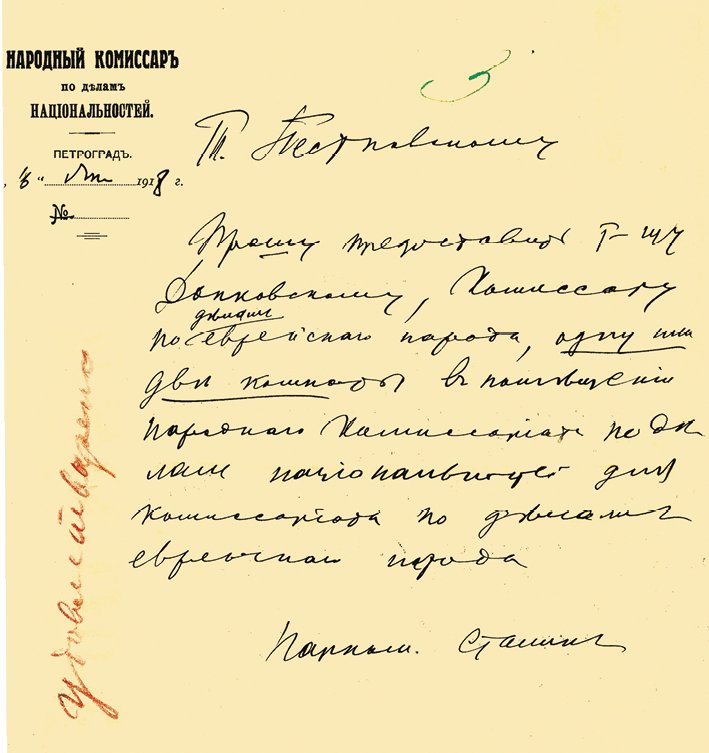 НАРОДНЫЙ КОМИССАРЪ
ПО ДѢЛАМЪ
НАЦІОНАЛЬНОСТЕЙ.
ПЕТРОГРАДЪ.
1918 г.
№
3
Т. Пестковскому
Прошу предоставить т-щу
Доняковскому, Комиссару
дѣлам
по еврейскаго народа, одну или
двѣ комнаты в помѣщеніи
народнаго Комиссаріата по дѣ
лам національностей для
комиссаріата по дѣлам
еврейскаго народа
Нарком. Сталин
удовлетворено